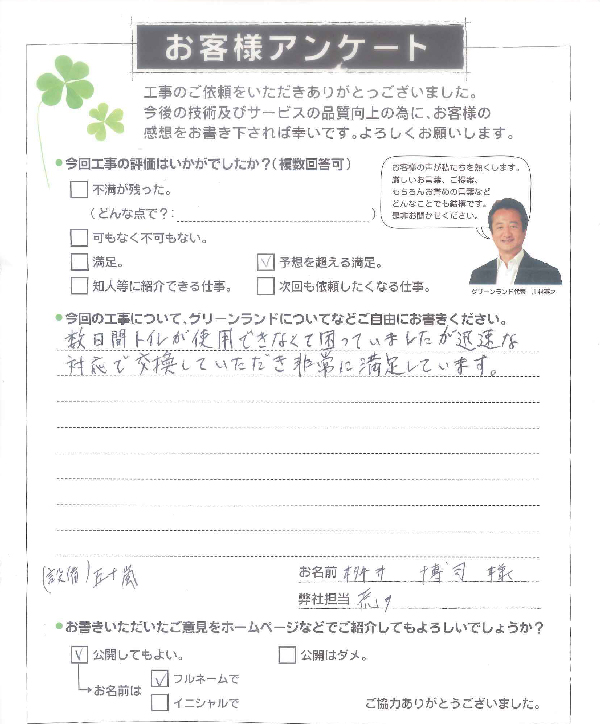 お客様アンケート
工事のご依頼をいただきありがとうございました。
今後の技術及びサービスの品質向上の為に、お客様の
感想をお書き下されば幸いです。よろしくお願いします。
•今回工事の評価はいかがでしたか?(複数回答可)
不満が残った。
(どんな点で?: )
可もなく不可もない。
満足。
✓ 予想を超える満足。
知人等に紹介できる仕事。
次回も依頼したくなる仕事。
お客様の声が私たちを熱くします。
厳しいお言葉、ご提案、
もちろんお誉めの言葉など
どんなことでも結構です。
是非お聞かせください。
グリーンランド代表
•今回の工事について、グリーンランドについてなどご自由にお書きください。
数日間トイレが使用できなくて困っていましたが迅速な
対応で交換していただき非常に満足しています。
(設備)五十嵐
お名前 桝井 博司 様
弊社担当 荒
•お書きいただいたご意見をホームページなどでご紹介してもよろしいでしょうか?
✓ 公開してもよい。
公開はダメ。
お名前は
✓ フルネームで
イニシャルで
ご協力ありがとうございました。